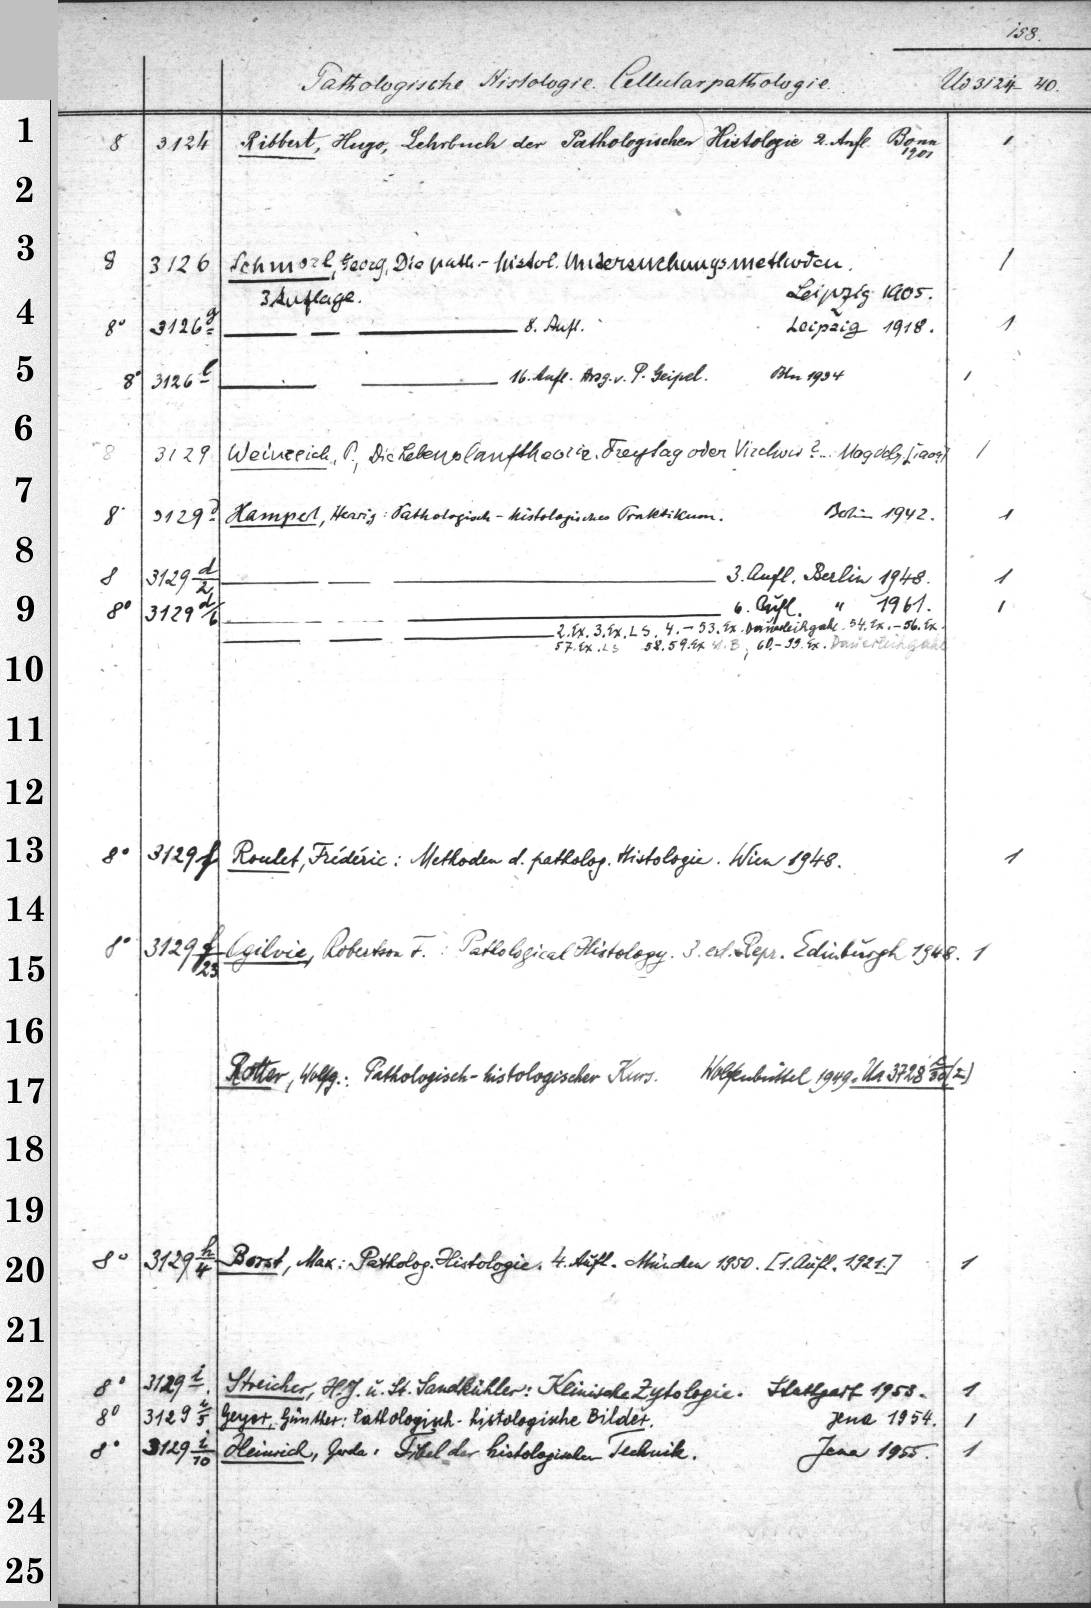 158.
Pathologische Histologie. Cellularpathologie. Ud 3124 40.
1
8 3124 Ribbert, Hugo, Lehrbuch der Pathologischen Histologie 2. Aufl. Bonn 1
1901
2
3
8 3126 Schmorl, Georg, Die path.-histol. Untersuchungsmethoden. 1
3 Auflage. Leipzig 1905.
4
8° 3126 g 8. Aufl. Leipzig 1918. 1
5
8° 3126 l 16. Aufl. Hrsg. v. P. Geipel. Bln 1934 1
6
8 3129 Weinreich, P., Die Lebenslauftheorie. Freytag oder Virchow?.. Magdebg. [1909] 1
7
8° 3129 Hamperl, Herwig: Pathologisch-histologisches Praktikum. Berlin 1942. 1
8
8 3129 d/2 3. Aufl. Berlin 1948. 1
9
8° 3129 d/6 6. Aufl. " 1961. 1
2. Ex. 3. Ex. LS. 4.-53. Ex. Dauerleihgabe. 54. Ex.-56. Ex.
57. Ex. LS 58. 59. Ex , 60.-99. Ex. Dauerleihgabe
10
11
12
13
8° 3129 f Roulet, Frédéric: Methoden d. patholog. Histologie. Wien 1948. 1
14
8° 3129 f/23 Ogilvie, Robertson F.: Pathological Histology. 3. ed. Repr. Edinburgh 1948. 1
15
16
17
Rotter, Wolfg.: Pathologisch-histologischer Kurs. Wolfenbüttel 1949. Ua 3728 /30(2)
18
19
20
8° 3129 h/4 Borst, Max: Patholog. Histologie. 4. Aufl. München 1950. [1. Aufl. 1921.] 1
21
22
8° 3129 i. Streicher, H.J. u. St. Sandkühler: Klinische Zytologie. Stuttgart 1953. 1
8° 3129 i/5 Geyer, Günther: Pathologisch-histologische Bilder. Jena 1954. 1
23
8° 3129 i/10 Heinrich, Gerda: Fibel der histologischen Technik. Jena 1955. 1
24
25